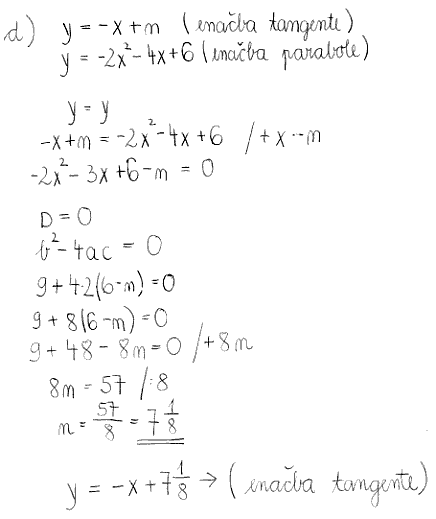 d) y = -x + n (enačba tangente)
y = -2x² - 4x + 6 (enačba parabole)
y = y
-x + n = -2x² - 4x + 6 / + x - n
-2x² - 3x + 6 - n = 0
D = 0
b² - 4ac = 0
9 + 4·2(6 - n) = 0
9 + 8(6 - n) = 0
9 + 48 - 8n = 0 / + 8n
8n = 57 / : 8
n = 57/8 = 7 1/8
y = -x + 7 1/8 → (enačba tangente)